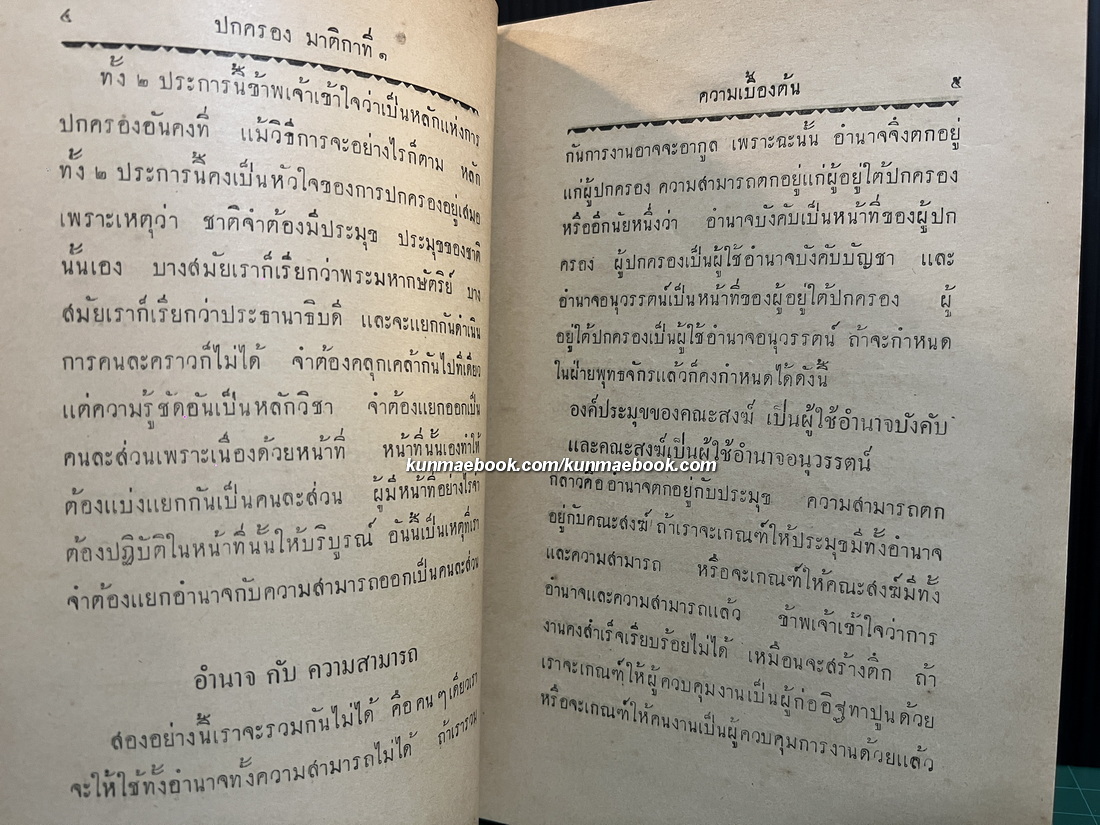 ๔
ปกครอง มาติกาที่ ๑
ทั้ง ๒ ประการนี้ข้าพเจ้าเข้าใจว่าเป็นหลักแห่งการ
ปกครองอันคงที่ แม้วิธีการจะอย่างไรก็ตาม หลัก
ทั้ง ๒ ประการนี้คงเป็นหัวใจของการปกครองอยู่เสมอ
เพราะเหตุว่า ชาติจำต้องมีประมุข ประมุขของชาติ
นั้นเอง บางสมัยเราก็เรียกว่าพระมหากษัตริย์ บาง
สมัยเราก็เรียกว่าประธานาธิบดี และจะแยกกันดำเนิน
การคนละคราวก็ไม่ได้ จำต้องคลุกเคล้ากันไปทีเดียว
แต่ความรู้ชัดอันเป็นหลักวิชา จำต้องแยกออกเป็น
คนละส่วนเพราะเนื่องด้วยหน้าที่ หน้าที่นั้นเองทำให้
ต้องแบ่งแยกกันเป็นคนละส่วน ผู้มีหน้าที่อย่างไรจำ
ต้องปฏิบัติในหน้าที่นั้นให้บริบูรณ์ อันนี้เป็นเหตุที่เรา
จำต้องแยกอำนาจกับความสามารถออกเป็นคนละส่วน
อำนาจ กับ ความสามารถ
สองอย่างนี้เราจะรวมกันไม่ได้ คือ คน ๆ เดียวเรา
จะให้ใช้ทั้งอำนาจทั้งความสามารถไม่ได้ ถ้าเรารวม
ความเบื้องต้น
๕
กันการงานอาจจะอากูล เพราะฉะนั้น อำนาจจึ่งตกอยู่
แก่ผู้ปกครอง ความสามารถตกอยู่แก่ผู้อยู่ใต้ปกครอง
หรืออีกนัยหนึ่งว่า อำนาจบังคับเป็นหน้าที่ของผู้ปก
ครอง ผู้ปกครองเป็นผู้ใช้อำนาจบังคับบัญชา และ
อำนาจอนุวรรตน์เป็นหน้าที่ของผู้อยู่ใต้ปกครอง ผู้
อยู่ใต้ปกครองเป็นผู้ใช้อำนาจอนุวรรตน์ ถ้าจะกำหนด
ในฝ่ายพุทธจักรแล้วก็คงกำหนดได้ดังนี้
องค์ประมุขของคณะสงฆ์ เป็นผู้ใช้อำนาจบังคับ
และคณะสงฆ์เป็นผู้ใช้อำนาจอนุวรรตน์
kunmaebook.com/kunmaebook.com
กล่าวคืออำนาจตกอยู่กับประมุข ความสามารถตก
อยู่กับคณะสงฆ์ ถ้าเราจะเกณฑ์ให้ประมุขมีทั้งอำนาจ
และความสามารถ หรือจะเกณฑ์ให้คณะสงฆ์มีทั้ง
อำนาจและความสามารถแล้ว ข้าพเจ้าเข้าใจว่าการ
งานคงสำเร็จเรียบร้อยไม่ได้ เหมือนจะสร้างตึก ถ้า
เราจะเกณฑ์ให้ผู้ควบคุมงานเป็นผู้ก่ออิฐทาปูนด้วย
หรือจะเกณฑ์ให้คนงานเป็นผู้ควบคุมการงานด้วยแล้ว